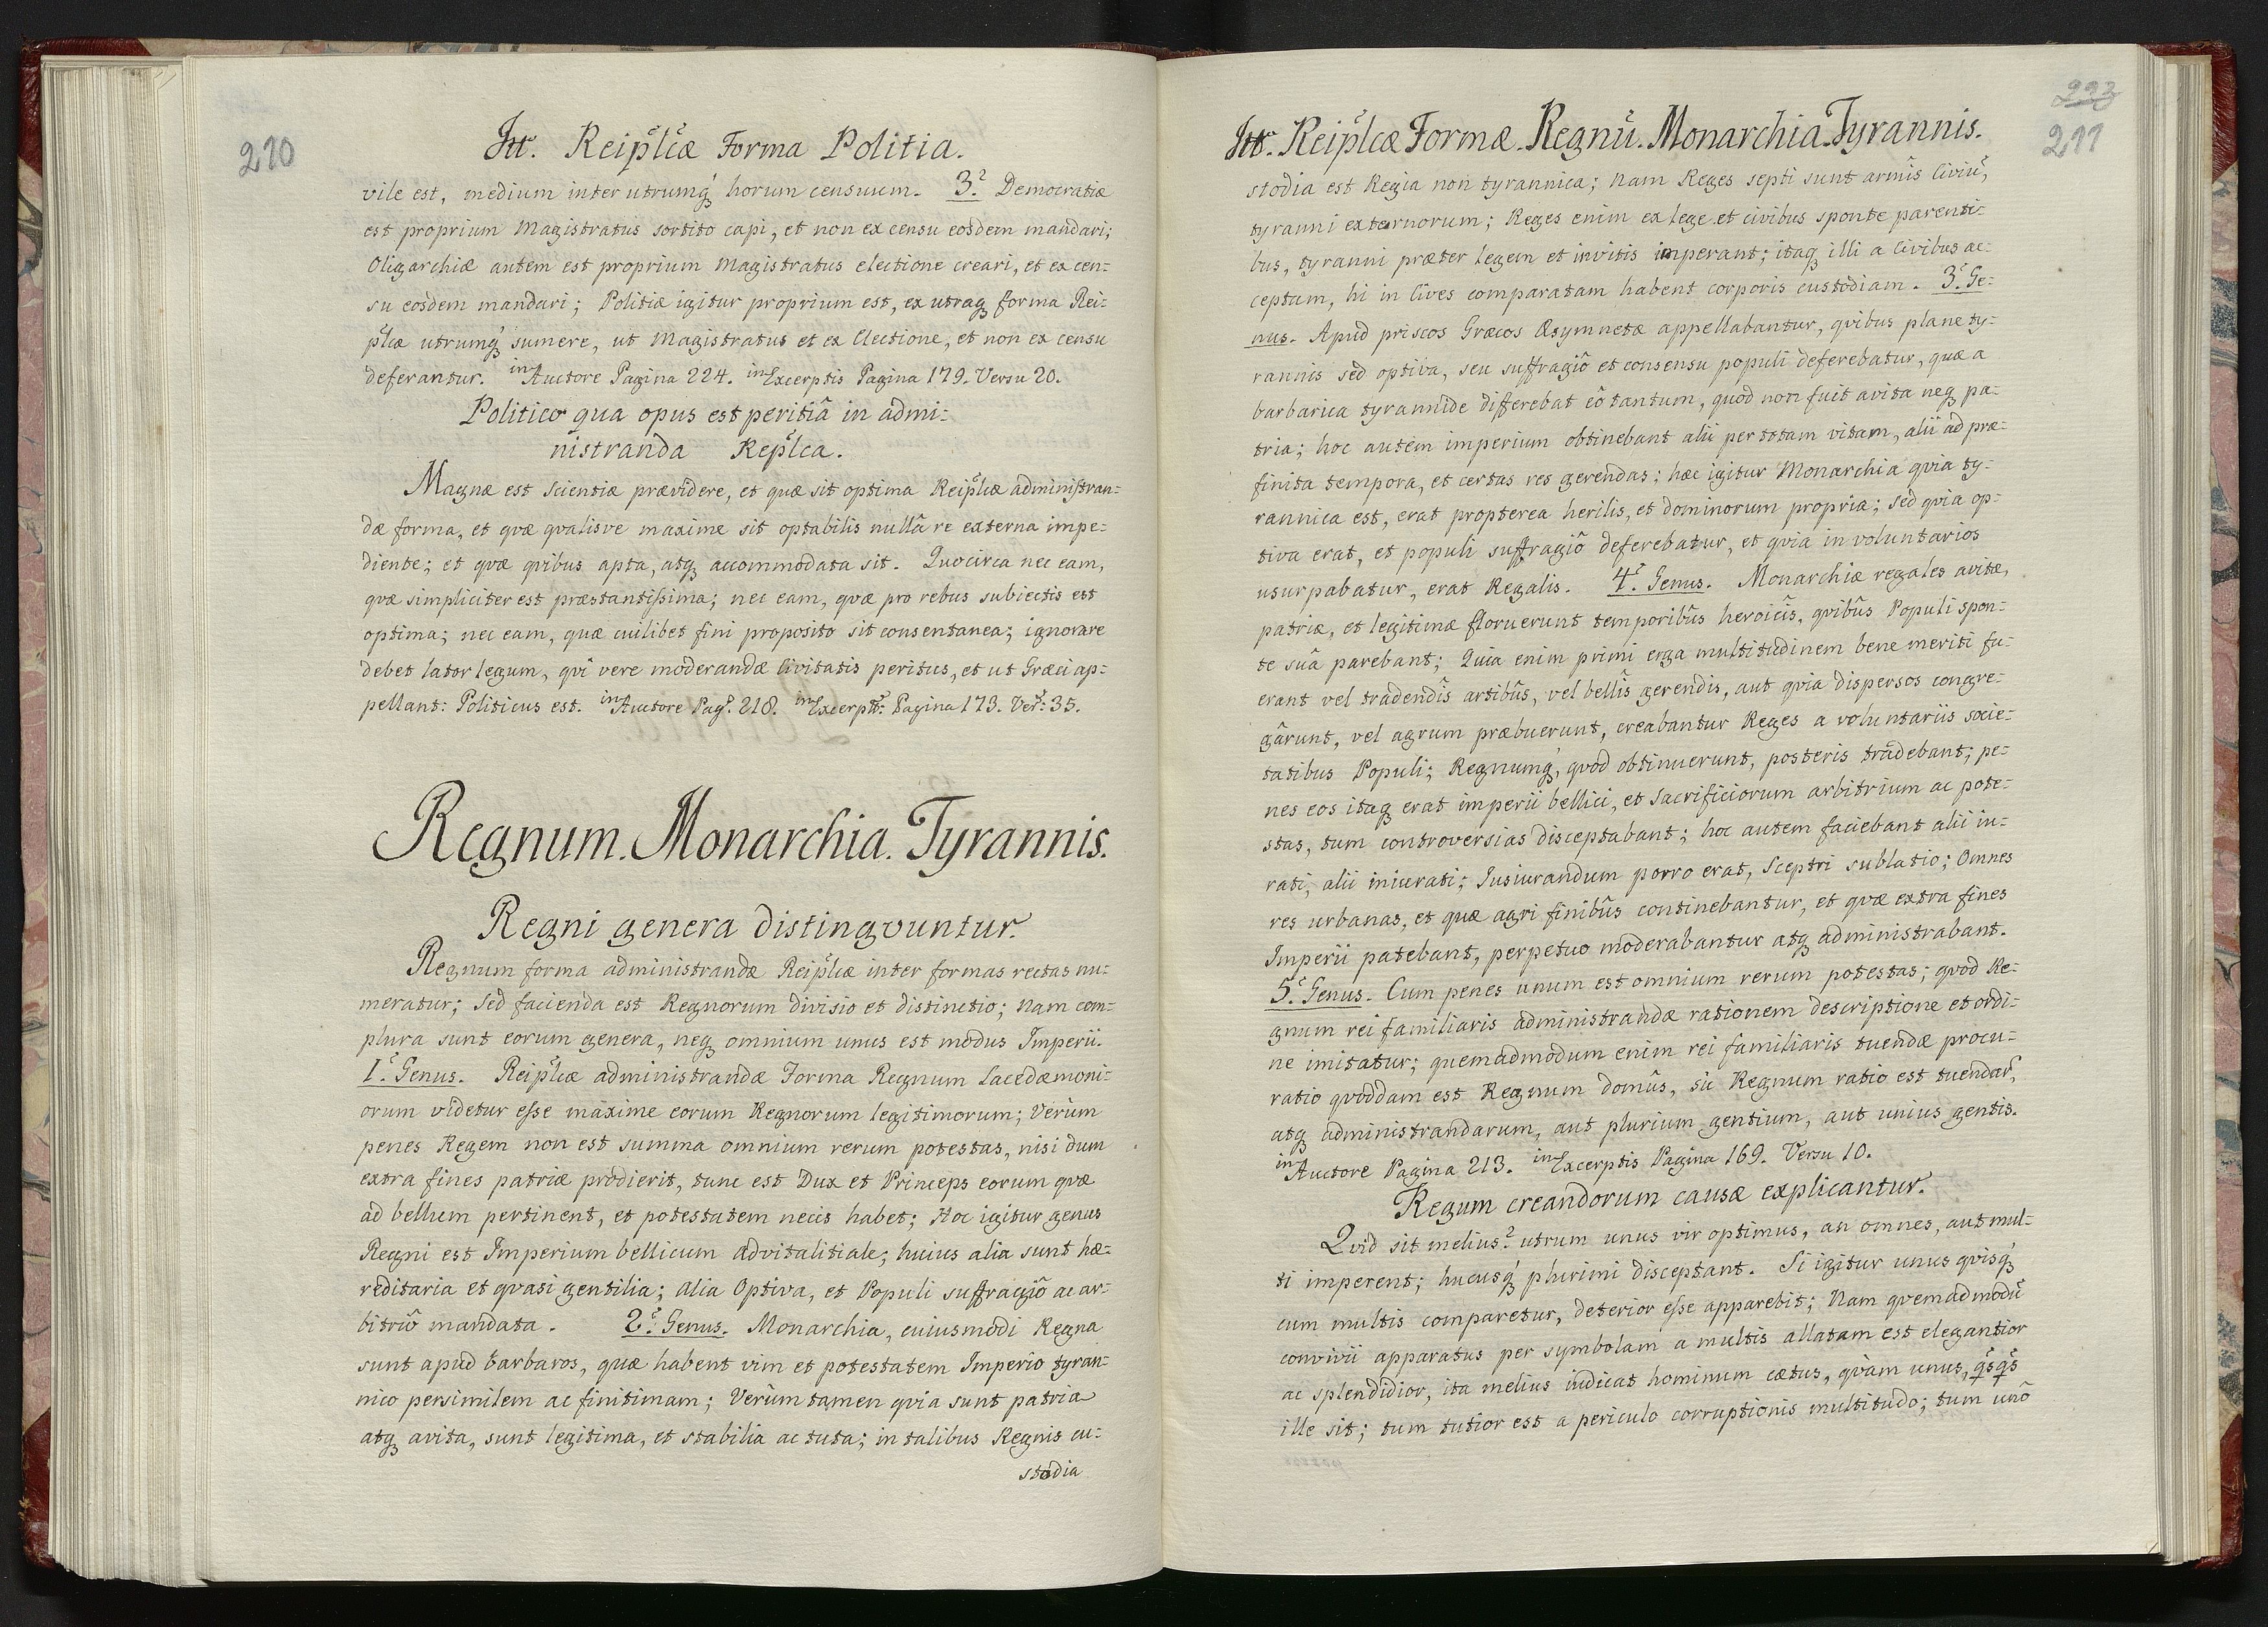 210
Itt. Reiplcæ Forma Politia.
vile est, medium inter utrumq́ horum censuum. 3.º Democratiæ
est proprium Magistratus sortito capi, et non ex censu eosdem mandari;
Oligarchiæ autem est proprium Magistratus electione creari, et ex cen=
su eosdem mandari; Politiæ igitur proprium est, ex utraq forma Rei=
plcæ utrumq́ sumere, ut Magistratus et ex Electione, et non ex censu
deferantur. in Auctore Pagina 224. in Excerptis Pagina 179. Versu 20.
Politico qua opus est peritiâ in admi=
nistranda Replca.
Magnæ est scientiæ prævidere, et quæ sit optima Reiplicæ administran=
dæ forma, et qvæ qvalisve maxime sit optabilis nullâ re externa impe=
diente; et qvæ qvibus apta, atq accommodata sit. Quocirca nec eam,
qvæ simpliciter est præstantissima; nec eam, qvæ pro rebus subiectis est
optima; nec eam, quæ cuilibet fini proposito sit consentanea; ignorare
debet lator legum, qvi vere moderandæ Civitatis peritus, et ut Græci ap=
pellant: Politicus est. in Auctore Pag. 218. in Excerpt: Pagina 173. Ver: 35.
Regnum. Monarchia. Tyrannis.
Regni genera distingvuntur.
Regnum forma administrandæ Reiplicæ inter formas rectas nu=
meratur; sed facienda est Regnorum divisio et distinctio; nam com=
plura sunt eorum genera, neq omnium unus est modus Imperii.
1. Genus. Reiplicæ administrandæ Forma Regnum Lacedæmoni=
orum videtur esse maxime eorum Regnorum legitimorum; Verùm
penes Regem non est summa omnium rerum potestas, nisi dum
extra fines patriæ prodierit, tunc est Dux et Princeps eorum qvæ
ad bellum pertinent, et potestatem necis habet; Hoc igitur genus
Regni est Imperium bellicum advitalitiale; huius alia sunt hæ=
reditaria et qvasi gentilia; alia Optiva, et Populi suffragiô ac ar=
bitriô mandata. 2. Genus. Monarchia, cuiusmodi Regna
sunt apud barbaros, quæ habent vim et potestatem Imperio tyran=
nico persimilem ac finitimam; Verùm tamen qvia sunt patria
atq avita, sunt legitima, et stabilia ac tuta; in talibus Regnis cu=
stodia
223
211
Itt. Reiplcæ Formæ. Regnū. Monarchia. Tyrannis.
stodia est Regia non tyrannica; nam Reges septi sunt armis Civiū,
tyranni externorum; Reges enim ex lege et civibus sponte parenti=
bus, tyranni præter legem et invitis imperant; itaq illi a Civibus ac=
ceptam, hi in Cives comparatam habent corporis custodiam. 3. Ge=
nus. Apud priscos Græcos Æsymnetæ appellabantur, qvibus plane ty=
rannis sed optiva, seu suffragiô et consensu populi deferebatur, quæ a
barbarica tyrannide differebat eô tantum, quod non fuit avita neq pa=
tria; hoc autem imperium obtinebant alii per totam vitam, alii ad præ=
finita tempora, et certas res gerendas; hæc igitur Monarchia qvia ty=
rannica est, erat propterea herilis, et dominorum propria; sed qvia op=
tiva erat, et populi suffragiô deferebatur, et qvia in voluntarios
usurpabatur, erat Regalis. 4. Genus. Monarchiæ regales avitæ,
patriæ, et legitimæ floruerunt temporibûs heroicîs, qvibûs Populi spon=
te suâ parebant; Quia enim primi erga multitudinem bene meriti fu=
erant vel tradendîs artibûs, vel bellîs gerendis, aut qvia dispersos congre=
gârunt, vel agrum præbuerunt, creabantur Reges a voluntariis socie=
tatibus Populi; Regnumq́, qvod obtinuerunt, posteris tradebant; pe=
nes eos itaq erat imperii bellici, et sacrificiorum arbitrium ac pote=
stas, tum controversias disceptabant; hoc autem faciebant alii iu=
rati, alii iniurati; Iusiurandum porro erat, Sceptri sublatio; Omnes
res urbanas, et quæ agri finibûs continebantur, et qvæ extra fines
Imperii patebant, perpetuo moderabantur atq administrabant.
5. Genus. Cum penes unum est omnium rerum potestas; qvod Re=
gnum rei familiaris administrandæ rationem descriptione et ordi=
ne imitatur; quemadmodum enim rei familiaris tuendæ procu=
ratio qvoddam est Regnum domûs, sic Regnum ratio est tuendar̄,
atq administrandarum, aut plurium gentium, aut unius gentis.
in Auctore Pagina 213. in Excerptis Pagina 169. Versu 10.
Regum creandorum causæ explicantur.
Qvid sit melius? utrum unus vir optimus, an omnes, aut mul=
ti imperent; hucusq́ plurimi disceptant. Si igitur unus qvisq́
cum multis comparetur, deterior esse apparebit; Nam qvemadmodū
convivii apparatus per symbolam a multis allatam est elegantior
ac splendidior, ita melius iudicat hominum cœtus, qvàm unus, qsqs
ille sit; tum tutior est a periculo corruptionis multitudo; tum unô